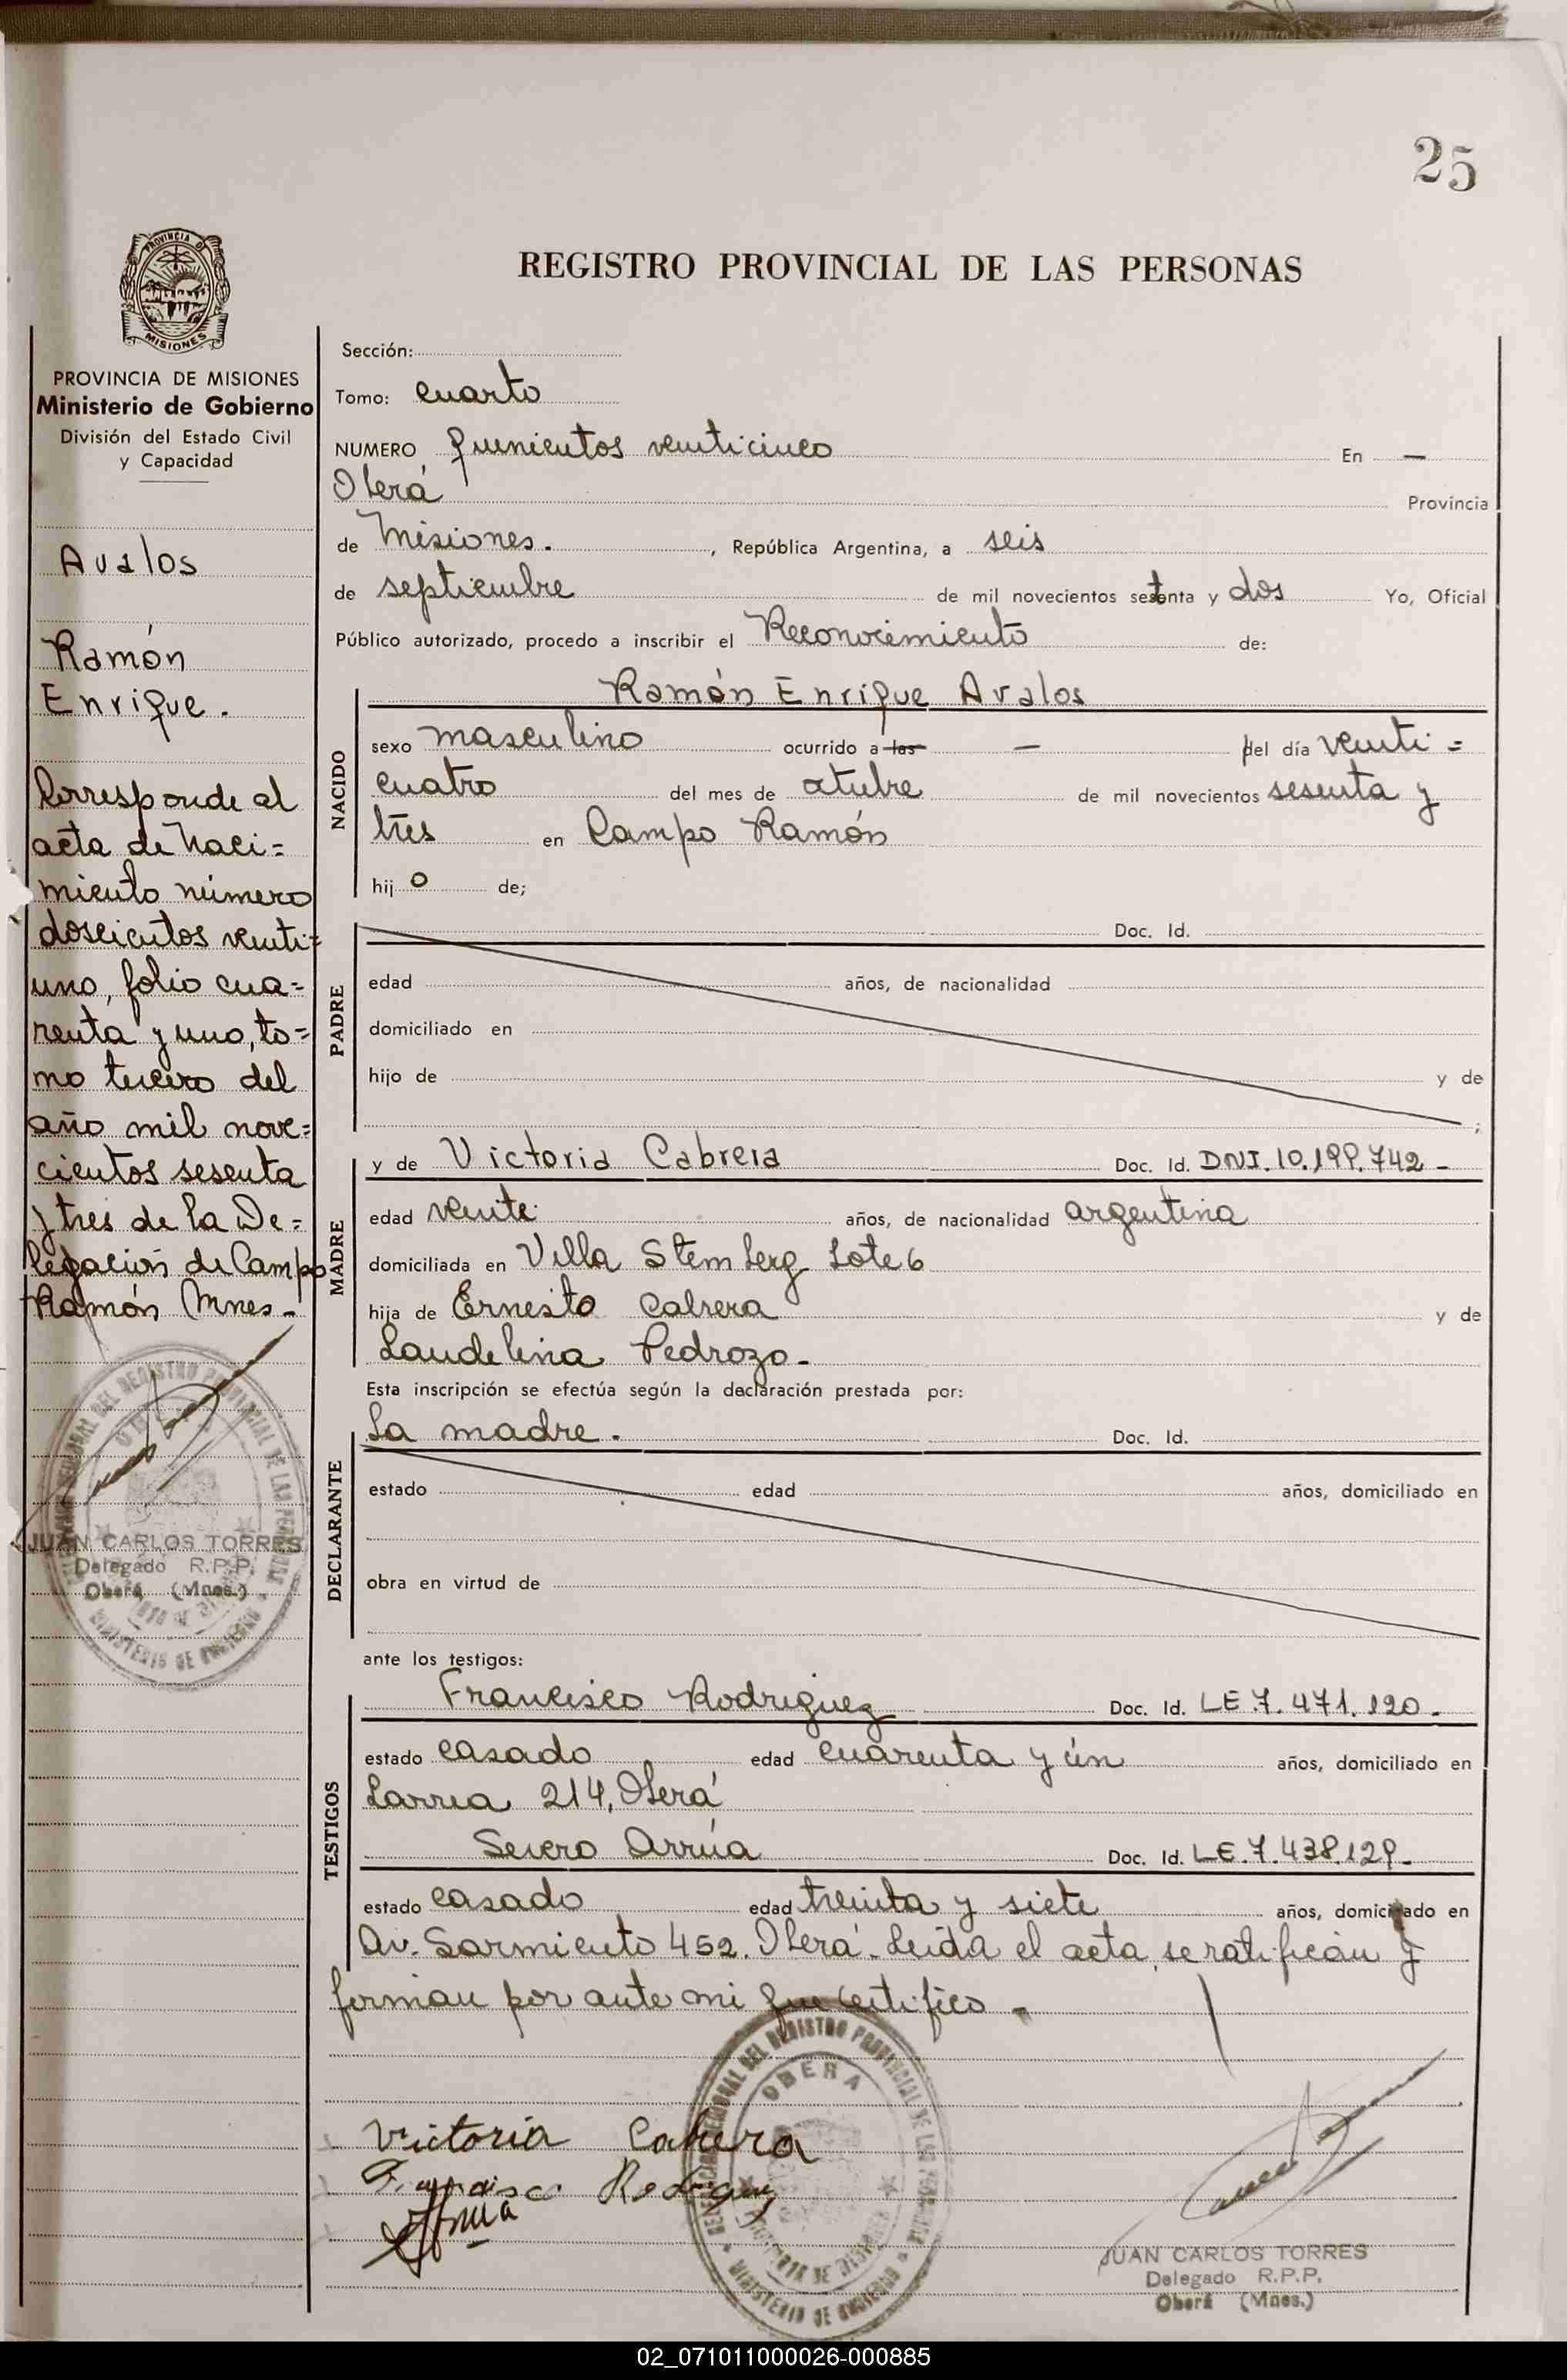 25
PROVINCIA DE
MISIONES
REGISTRO PROVINCIAL DE LAS PERSONAS
PROVINCIA DE MISIONES
Ministerio de Gobierno
División del Estado Civil
y Capacidad
Avalos
Ramón
Enrique.
Corresponde al
acta de Naci=
miento número
doscientos venti=
uno, folio cua=
renta y uno, to=
mo tercero del
año mil nove=
cientos sesenta
y tres de la De=
legación de Campo
Ramón Mnes.-
JUAN CARLOS TORRES
Delegado R.P.P.
Oberá (Mnes.)
Sección:
Tomo: cuarto
NUMERO quinientos venticinco En —
Oberá Provincia
de Misiones. , República Argentina, a seis
de septiembre de mil novecientos setenta y dos Yo, Oficial
Público autorizado, procedo a inscribir el Reconocimiento de:
Ramón Enrique Avalos
NACIDO
sexo masculino ocurrido a las — del día venti=
cuatro del mes de octubre de mil novecientos sesenta y
tres en Campo Ramón
hij o de;
PADRE
Doc. Id.
edad años, de nacionalidad
domiciliado en
hijo de y de
;
MADRE
y de Victoria Cabrera Doc. Id. DNI. 10.199.742-
edad vente años, de nacionalidad argentina
domiciliada en Villa Stemberg Lote 6
hija de Ernesto Cabrera y de
Laudelina Pedrozo-
Esta inscripción se efectúa según la declaración prestada por:
DECLARANTE
La madre. Doc. Id.
estado edad años, domiciliado en
obra en virtud de
ante los testigos:
TESTIGOS
Francisco Rodriguez Doc. Id. LE 7.471.120.
estado casado edad cuarenta y ún años, domiciliado en
Larrea 214, Oberá
Severo Arrúa Doc. Id. LE.7.438.129.
estado casado edad treinta y siete años, domiciliado en
Av. Sarmiento 452. Oberá-Leida el acta, se ratifican y
firman por ante mi que certifico.
OBERA
Victoria Cabrera
Francisco Rodriguez
Arrua
JUAN CARLOS TORRES
Delegado R.P.P.
Oberá (Mnes.)
02_071011000026-000885